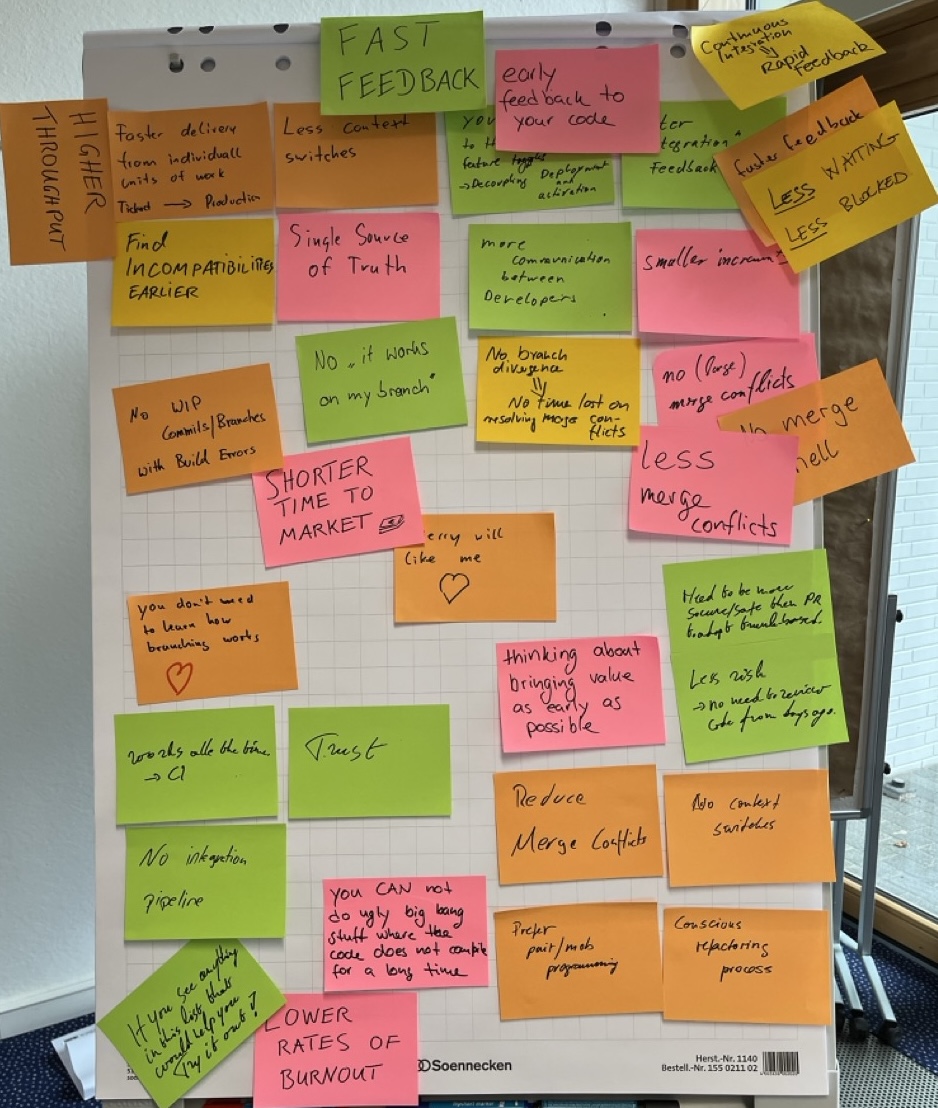 FAST
FEEDBACK
early
feedback to
your code
Continuous
Integration
⇓
Rapid
Feedback
HIGHER
THROUGHPUT
Faster delivery
from individuall
units of work
Ticket → Production
Less context
switches
you
to th
feature toggle
→ Decoupling Deployment
and
activation
ter
tegration"
Feedback
faster feedback
LESS WAITING
LESS BLOCKED
Find
INCOMPATIBILITIES
EARLIER
Single Source
of Truth
more
communication
between
Developers
smaller increments
No „it works
on my branch"
No branch
divergence
⇓
No time lost on
resolving merge con-
flicts
no (large)
merge conflicts
No merge
hell
Less
merge
conflicts
No WIP
Commits/Branches
with Build Errors
SHORTER
TIME TO
MARKET
erry will
like me
you don't need
to learn how
branching works
Need to be more
secure/safe then PR
to adopt trunk-based.
Less risk
→ no need to review
code from days ago.
thinking about
bringing value
as early as
possible
works alle the time
→ CI
Trust
Reduce
Merge Conflicts
No context
switches
No integration
pipeline
you CAN not
do ugly big bang
stuff where the
code does not compile
for a long time
Prefer
pair/mob
programming
Conscious
refactoring
process
If you see anything
in this list that
would help you
Try it out!
LOWER
RATES OF
BURNOUT
Soennecken
Herst.-Nr. 1140
Bestell.-Nr. 155 0211 02